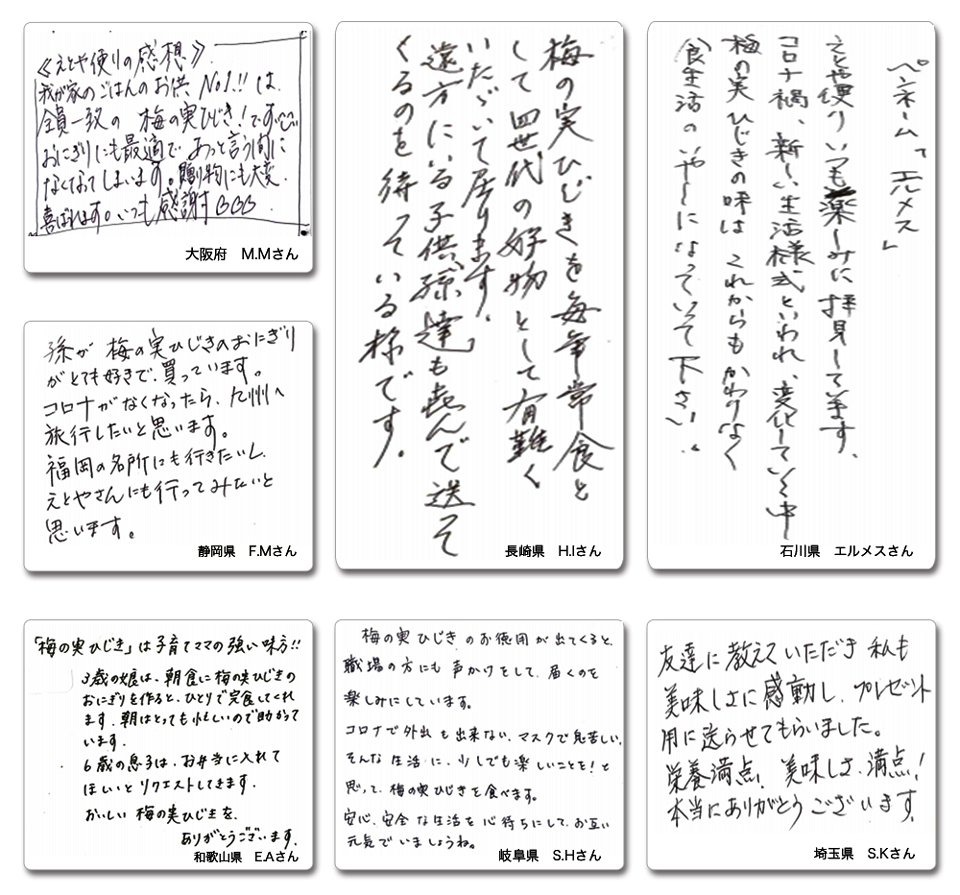 《えとや便りの感想》
我が家のごはんのお供 No1.!! は、
全員一致の 梅の実ひじき！です
おにぎりにも最適で あっと言う間に
なくなってしまいます。贈り物にも大変
喜ばれます。いつも感謝
大阪府 M.Mさん
梅の実ひじきを毎年常食と
して四世代の好物として有難く
いたゞいて居ります。
遠方にいる子供、孫達も喜んで送って
くるのを待っている様です。
長崎県 H.Iさん
ペンネーム「エルメス」
えとや便りいつも楽しみに拝見しています、
コロナ禍、新しい生活様式といわれ、変化していく中
梅の実ひじきの味は これからもかわりなく
食生活のいやしになっていって下さい。
石川県 エルメスさん
孫が 梅の実ひじきのおにぎり
がとても好きで、買っています。
コロナがなくなったら、九州へ
旅行したいと思います。
福岡の名所にも行きたいし、
えとやさんにも行ってみたいと
思います。
静岡県 F.Mさん
「梅の実ひじき」は子育てママの強い味方!!
3歳の娘は、朝食に梅の実ひじきの
おにぎりを作ると、ひとりで完食してくれ
ます。朝はとっても忙しいので助かって
います。
6歳の息子は、お弁当に入れて
ほしいとリクエストしてきます。
おいしい 梅の実ひじきを、
ありがとうございます。
和歌山県 E.Aさん
梅の実ひじきのお徳用が出てくると、
職場の方にも 声かけをして、届くのを
楽しみにしています。
コロナで外出も出来ない、マスクで息苦しい、
そんな生活に、少しでも楽しいことを！と
思って、梅の実ひじきを食べます。
安心、安全な生活を心待ちにして、お互い
元気でいましょうね。
岐阜県 S.Hさん
友達に教えていただき 私も
美味しさに感動し、プレゼント
用に送らせてもらいました。
栄養満点！ 美味しさ、満点！
本当にありがとうございます。
埼玉県 S.Kさん